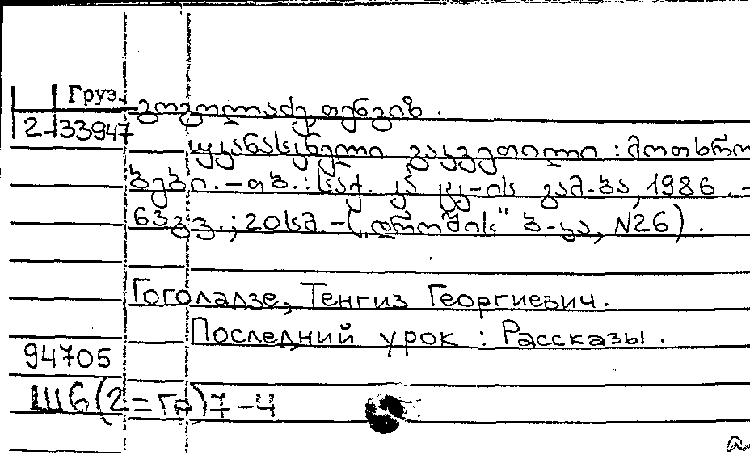 Груз.
2-33947
გოგოლაძე, თენგიზ.
უკანასკნელი გაკვეთილი : მოთხრო
ბები. – თბ. : საქ. კპ ცკ-ის გამ-ბა, 1986. –
63 გვ. ; 20 სმ. – („დროშის“ ბ-კა, N26).
Гоголадзе, Тенгиз Георгиевич.
Последний урок : Рассказы.
94705
Ш6(2=Гр)7-4